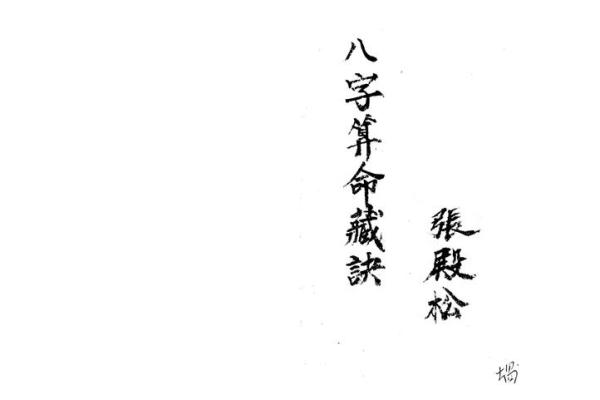 張殿松
八字算命藏訣